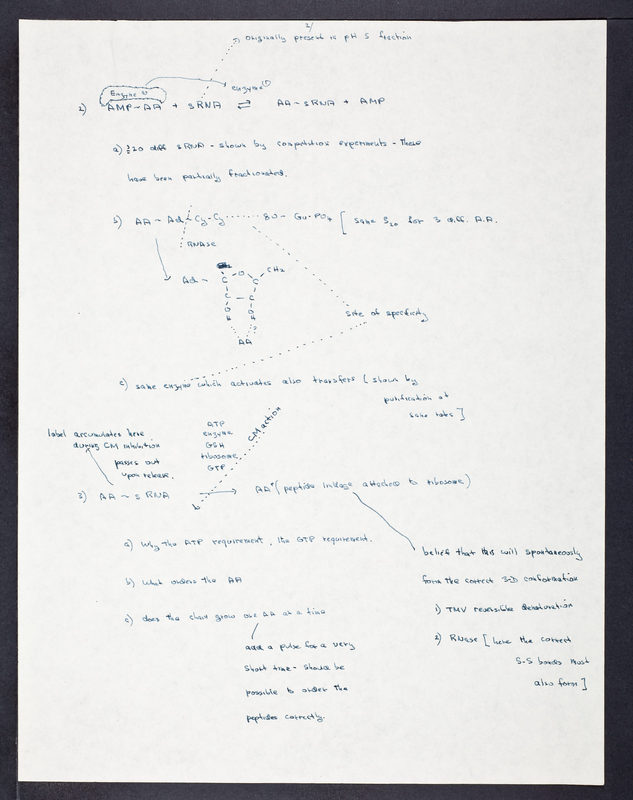 2/
1) originally present in pH 5 fraction
Enzyme
enzyme (1)
2) AMP~AA + sRNA ⇌ AA-sRNA + AMP
a) ≥20 diff sRNA - shown by competition experiments - these
have been partially fractionated.
b) AA ~ Ad - Cy-Cy ...... 80 - Gu-PO4 [ same S20 for 3 diff. A.A.
RNASE
Ad - C O C CH2
C - C
O O
H H
AA
site of specificity
c) same enzyme which activates also transfers [ shown by
purification at
same rates ]
label accumulates here
during CM inhibition
passes out
upon release.
ATP
enzyme
GSH
ribosome
GTP
CM action
3) AA ~ sRNA → AA (peptide linkage attached to ribosome)
a) Why the ATP requirement, the GTP requirement.
b) What orders the AA
c) does the chain grow one AA at a time
add a pulse for a very
short time - should be
possible to order the
peptides correctly.
belief that this will spontaneously
form the correct 3-D conformation
1) TMV reversible denaturation
2) RNase [ here the correct
S-S bonds must
also form ]